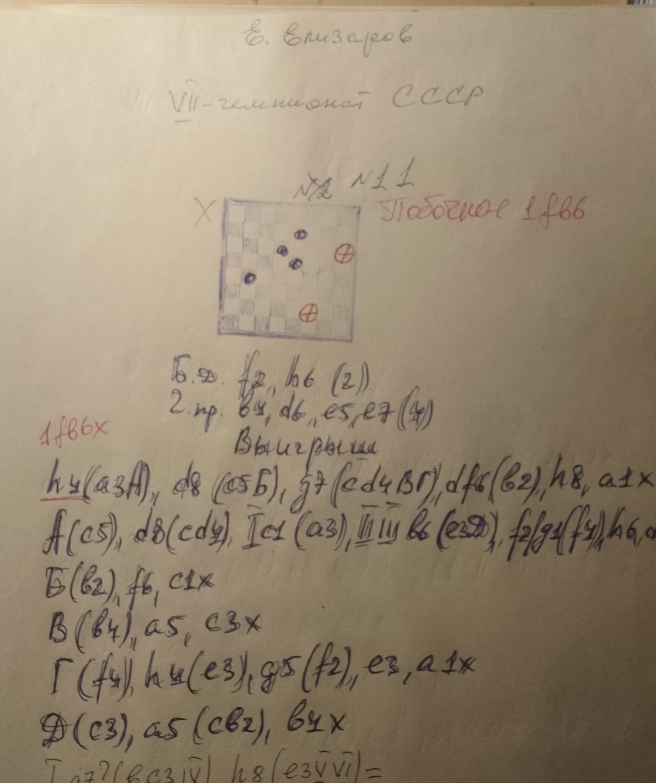 Е. Елизаров
VII-чемпионат СССР
№11
X Побочное 1fb6
Б.Д. f2, h6 (2)
Ч.пр. b4, d6, e5, e7 (4)
1fb6x
Выигрыш
h4(a3A), d8 (c5Б), g7(cd4ВГ), df6(b2), h8, a1x
A(c5), d8(cd4) I c1 (a3), II III b6 (e3Д), f2/g1(f4), h6,
Б(b2), f6, c1x
В(b4), a5, c3x
Г(f4), h4(e3), g5(f2), e3, a1x
Д(c3), a5(cb2), b4x